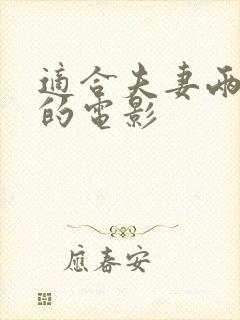 適合夫妻兩
的電影
應春安